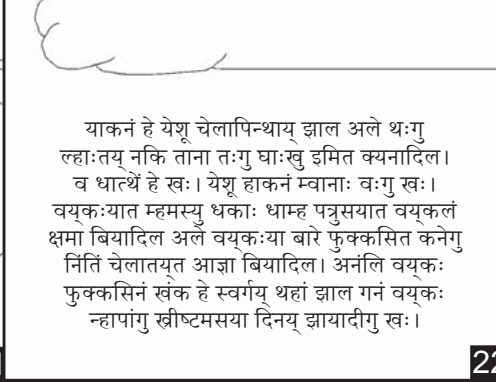 याकनं हे येशू चेलापिन्थाय् झाल अले थःगु
ल्हाःतय् नकि ताना तःगु घाःखु इमित क्यनादिल।
व धात्थें हे खः। येशू हाकनं म्वानाः वःगु खः।
वय्‌कःयात म्हमस्यु धकाः धाम्ह पत्रुसयात वय्‌कलं
क्षमा बियादिल अले वय्‌कःया बारे फुक्कसित कनेगु
निंतिं चेलातय्‌त आज्ञा बियादिल। अनंलि वय्‌कः
फुक्कसिनं खंक हे स्वर्गय् थहां झाल गनं वय्‌कः
न्हापांगु ख्रीष्टमसया दिनय् झायादीगु खः।